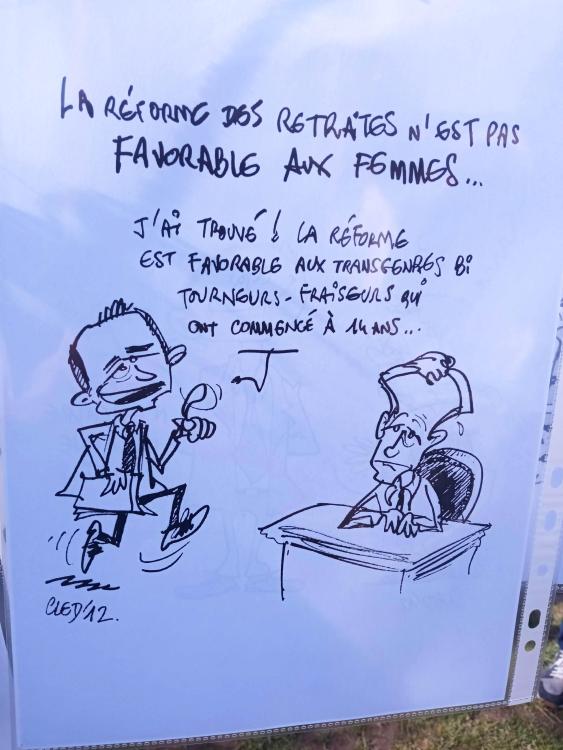 LA RÉFORME DES RETRAITES N'EST PAS
FAVORABLE AUX FEMMES...
J'AI TROUVÉ ! LA RÉFORME
EST FAVORABLE AUX TRANSGENRES BI
TOURNEURS-FRAISEURS QUI
ONT COMMENCÉ À 14 ANS...
CLED'12.